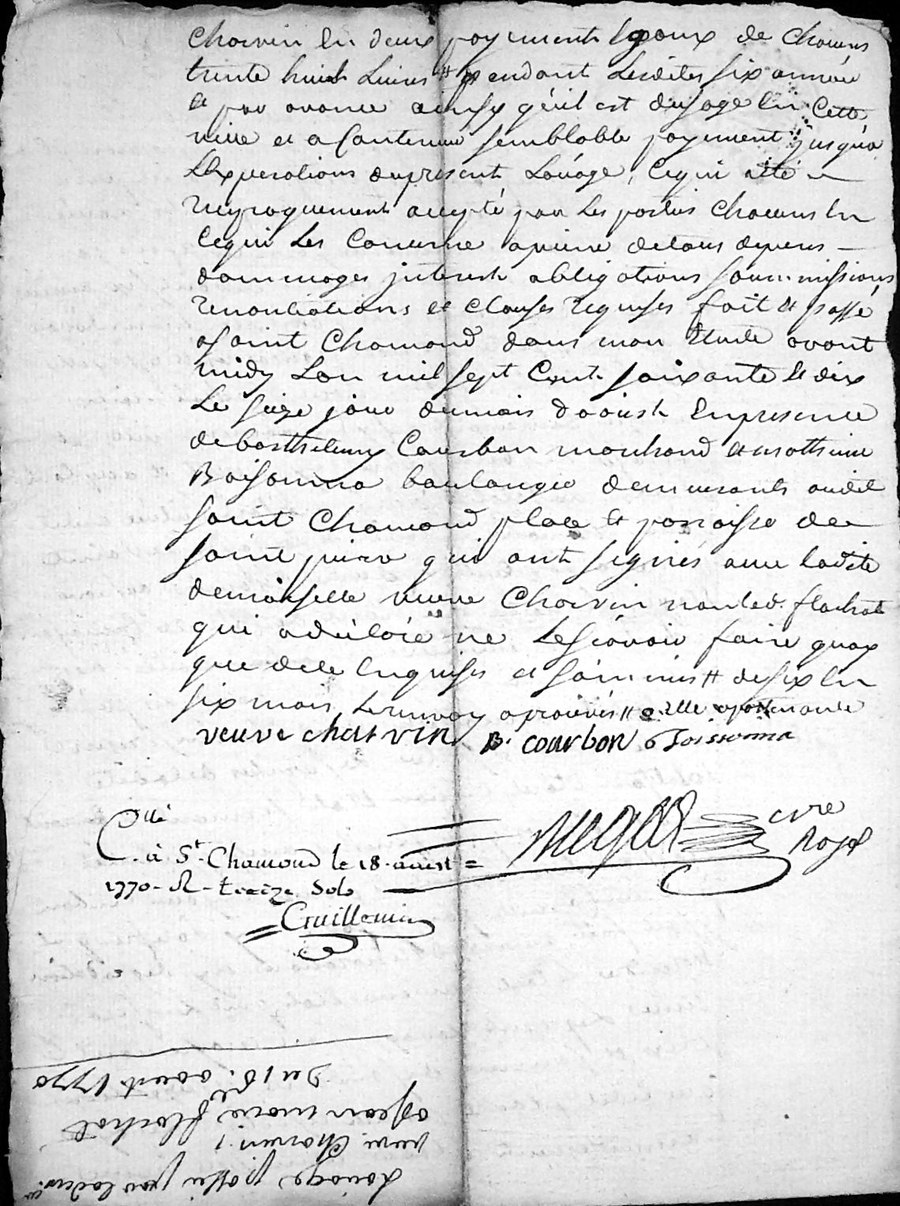 Charvin en deux payements Egaux de chacuns
trente huit Livres pendant Lesdites six année
et par avance ainsy qu'il est dusage En Cette
ville et a Continuer semblable payement jusqu'a
Lexpirations dupresent Loüage, Cequi a été
reciproquement accepté par Les parties Chacuns En
Cequi Les Concerne apeine detous depens
dommages interests obligations soummissions
renontiations et clauses requises fait et passé
a saint Chamond dans mon Etude avant
midy Lan mil sept Cents soixante et dix
Le seize jour dumois daoust Enpresence
debarthelemy Courbon marchand et mathieu
boulanger demeurants audit
saint Chamond place et parroisse de
saint pierre qui ont signés avec ladite
demoiselle veuve Charvin non led. flachat
qui a déclaré ne Lesçavoir faire quoy
que dele Enquises et de six En
six mois Lerenvoy aprouvés
veuve charvin B. courbon
nre
Royal
C.llé
à St. Chamond le 18. aoust
1770. R. treize Sols
Guillemin
Loüage passé par lad.
veuve Charvin
a Jean marie flachat
Du 16e. aoust 1770